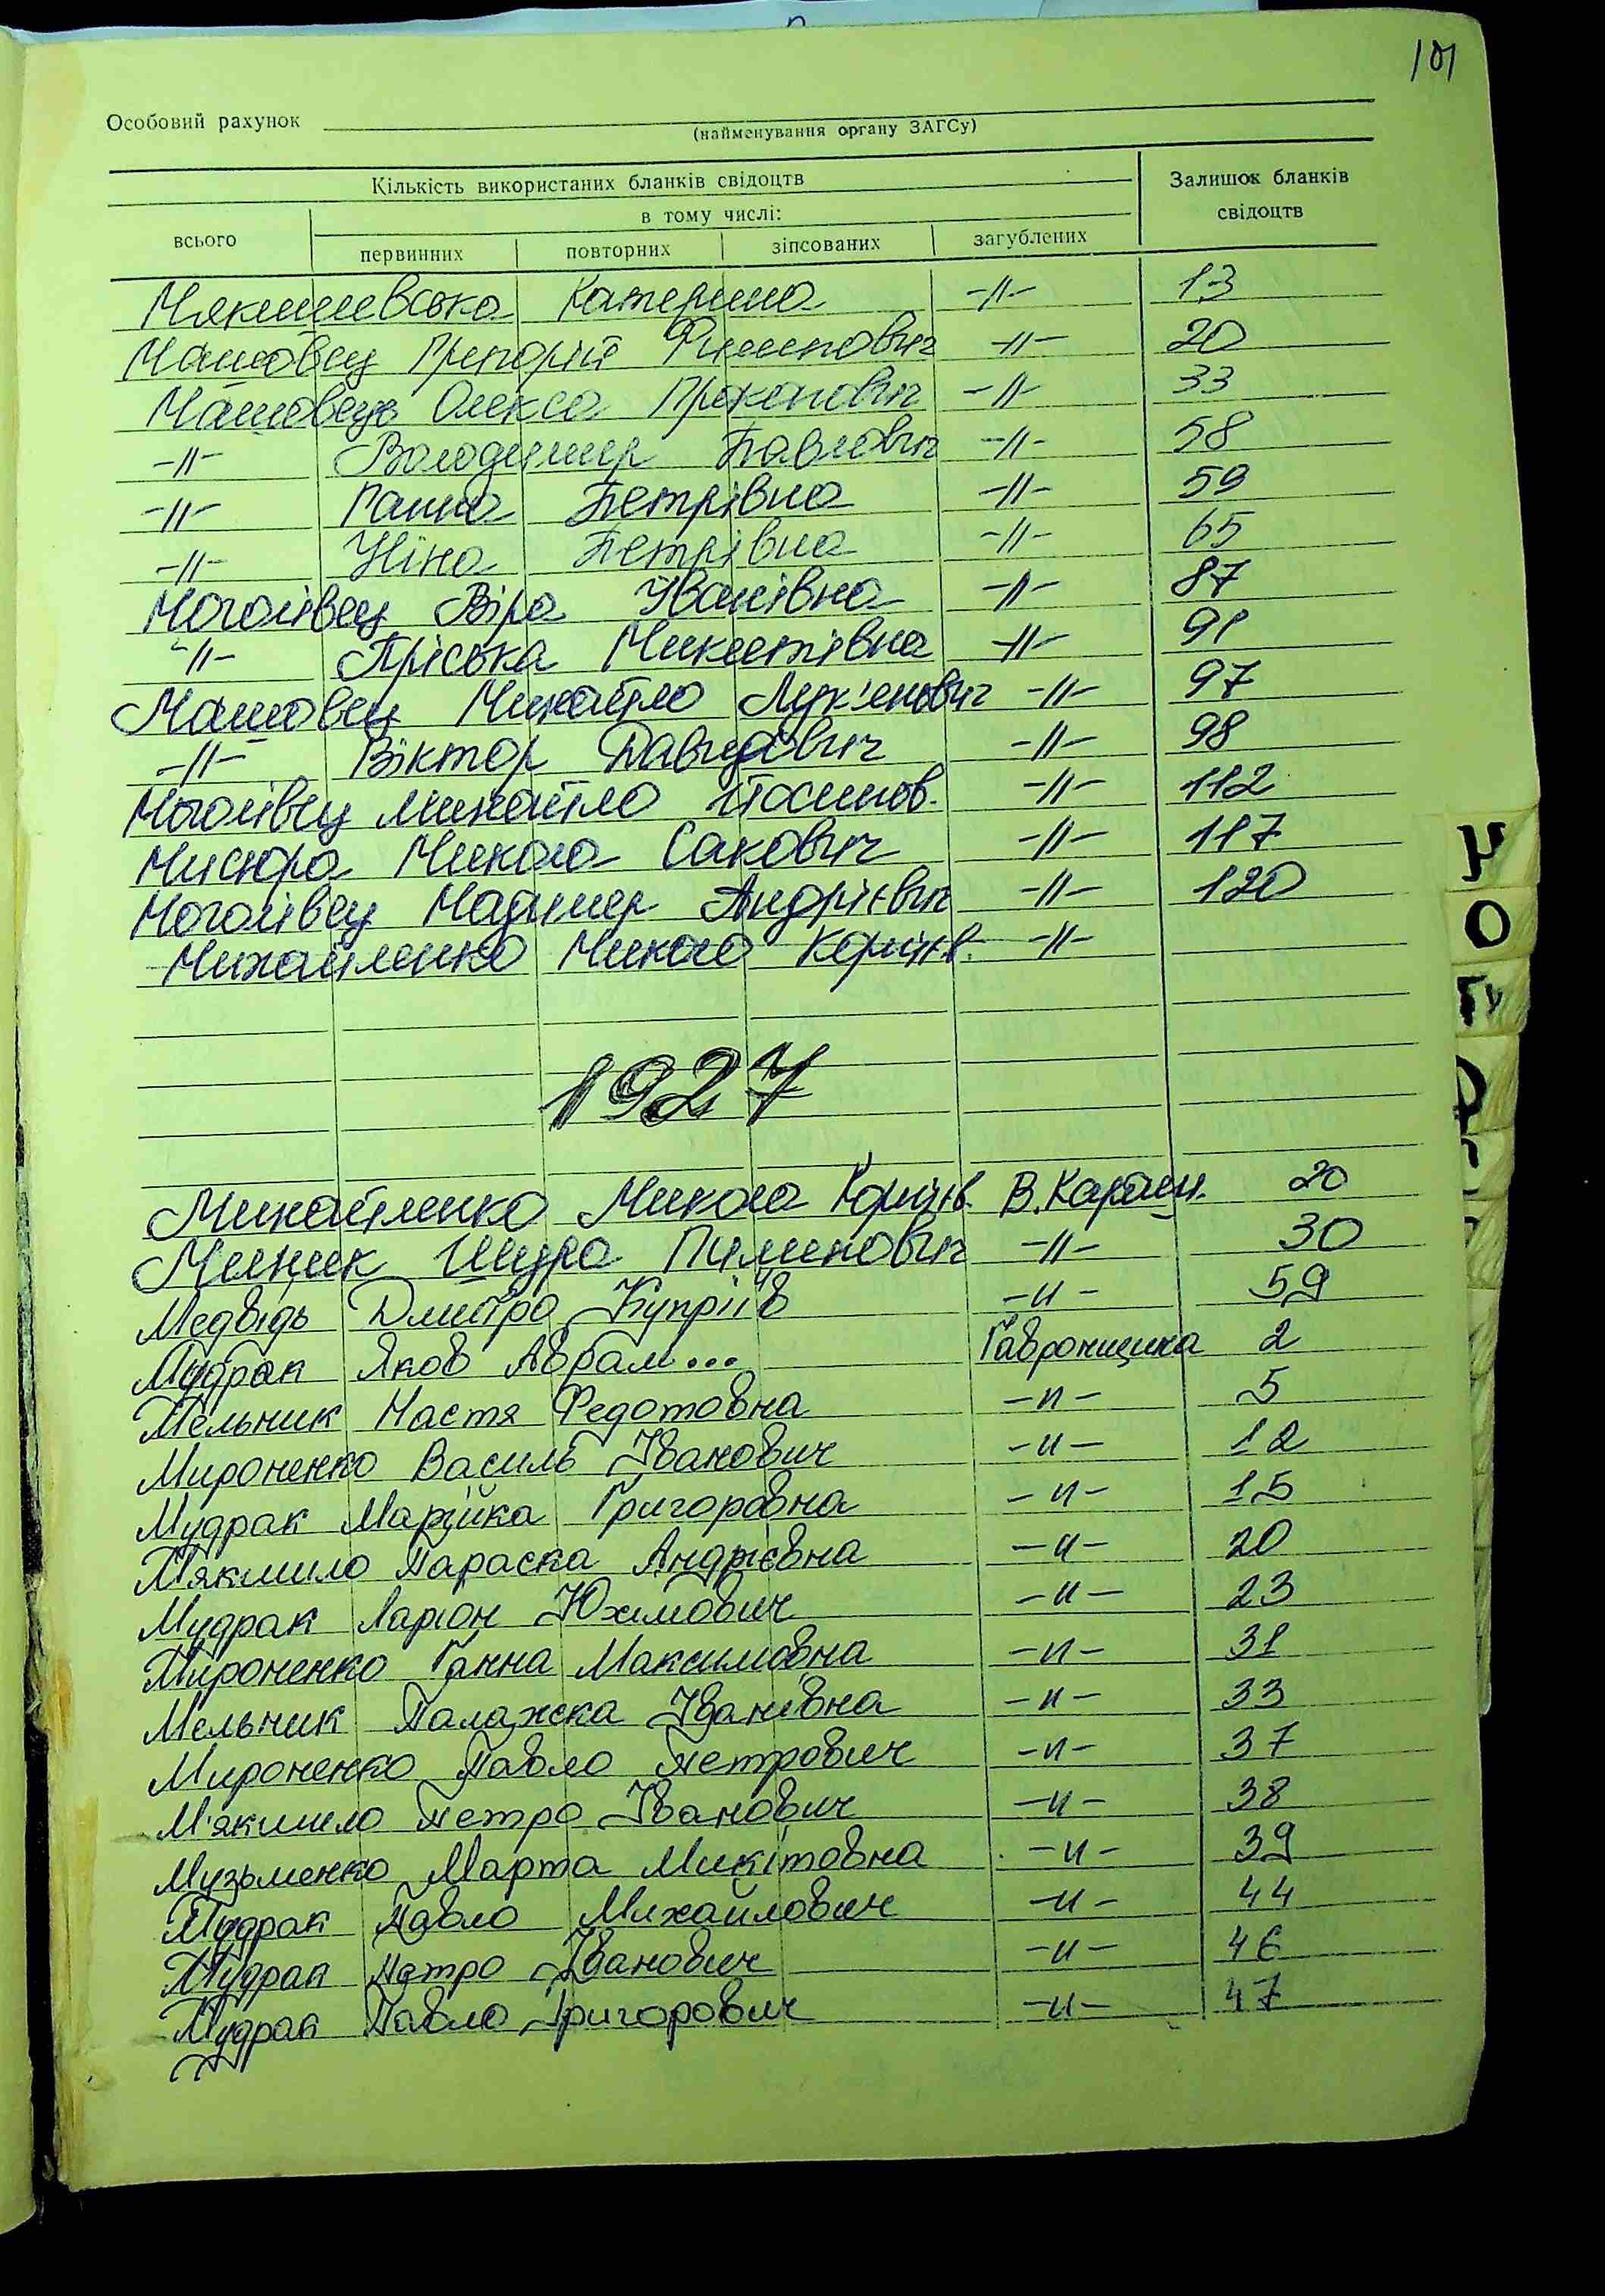 101
Особовий рахунок
(найменування органу ЗАГСу)
Кількість використаних бланків свідоцтв
Залишок бланків свідоцтв
в тому числі:
всього первинних повторних зіпсованих загублених
Мякишевська Катерина -//- 13
Машовец Григорій Филипович -//- 20
Машовець Олекса Прокопович -//- 33
-//- Володимир Павлович -//- 58
-//- Ганна Петрівна -//- 59
-//- Ніна Петрівна -//- 65
Моголівец Віра Іванівна -//- 87
-//- Пріська Микитівна -//- 91
Машовец Михайло Лук'янович -//- 97
-//- Віктор Давидович -//- 98
Моголівец Михайло Йосипов. -//- 112
Мисюра Микола Сакович -//- 117
Моголівец Надимер Андрієвич -//- 120
Михайленко Микола Корнієв. -//-
1927
Михайленко Микола Корнієв. В.Карашн. 20
Мелник Шура Пилипович -//- 30
Медвідь Дмитро Купріїв -//- 59
Мудрак Яков Абрам... Гавронщина 2
Мельник Настя Федотовна -//- 5
Мироненко Василь Іванович -//- 12
Мудрак Марійка Григоровна -//- 15
М'якшило Параска Андрієвна -//- 20
Мудрак Ларіон Юхимович -//- 23
Мироненко Ганна Максимовна -//- 31
Мельник Палажка Іванівна -//- 33
Мироненко Павло Петрович -//- 37
М'якшило Петро Іванович -//- 38
Музьменко Марта Микитовна -//- 39
Мудрак Павло Михайлович -//- 44
Мудрак Петро Іванович -//- 46
Мудрак Павло Григорович -//- 47